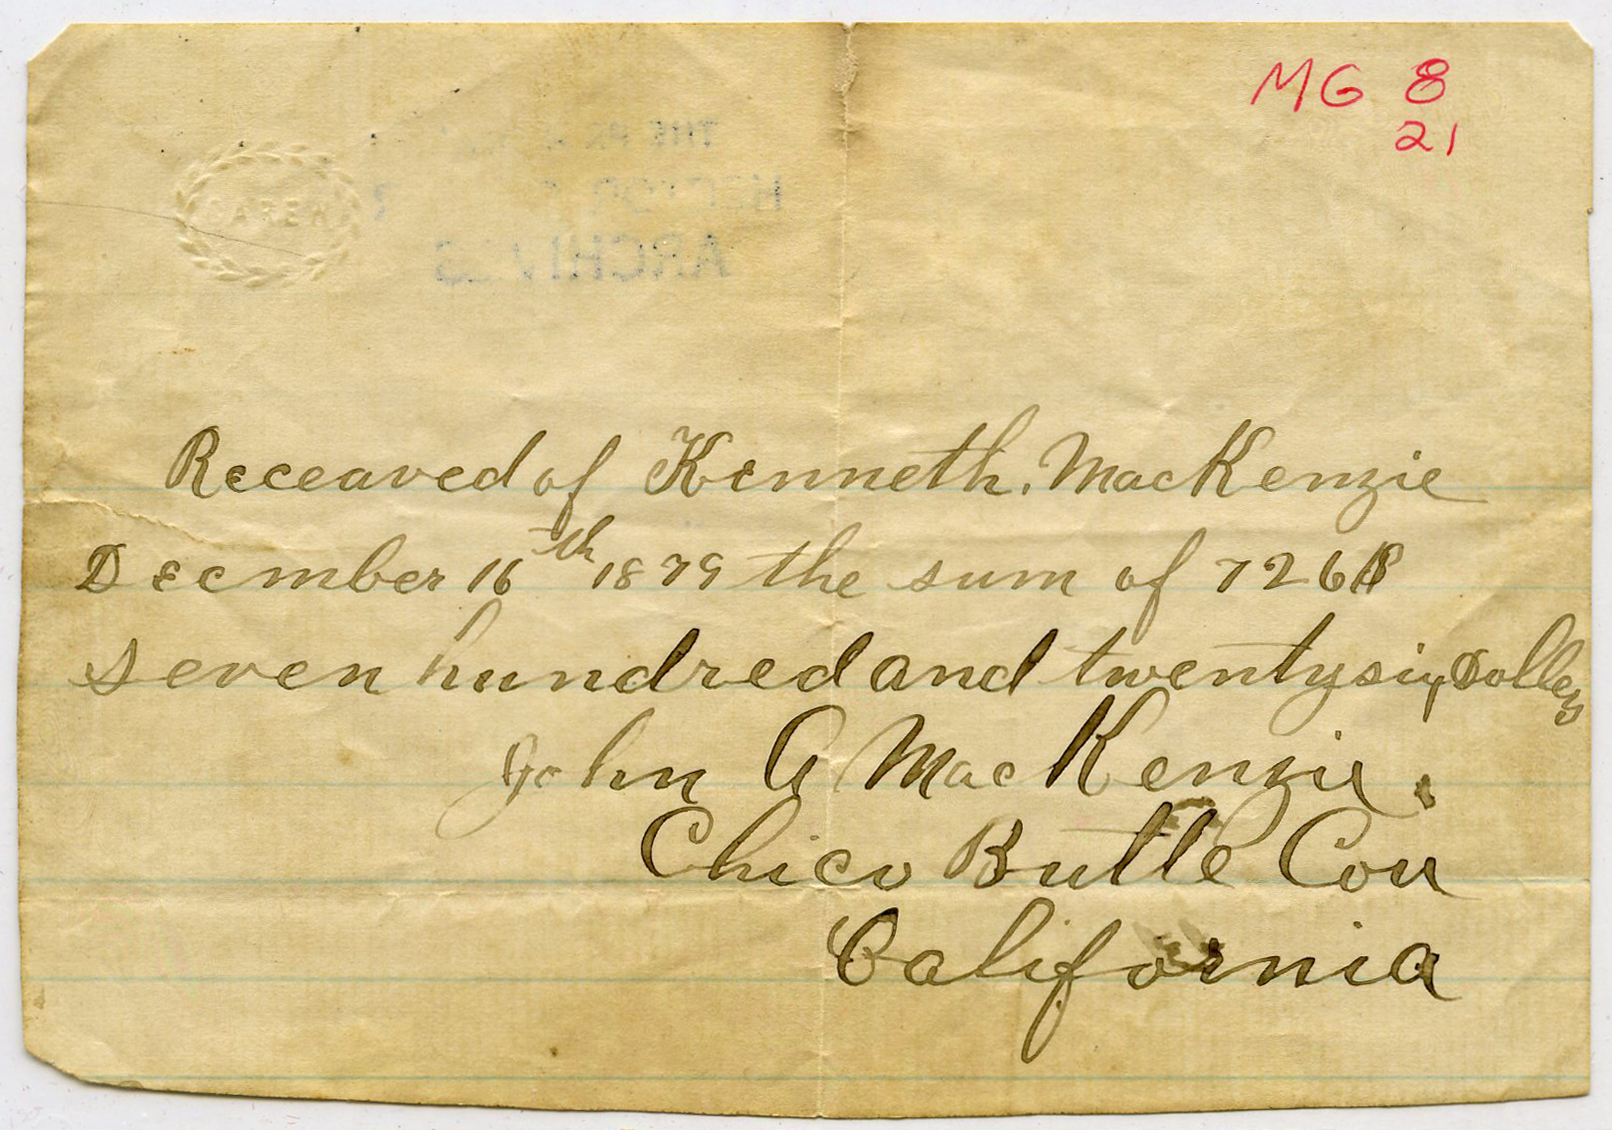 MG 8
21
CAREW
THE
ARCHIVES
Receaved of Kenneth. MacKenzie
December 16th 1879 the sum of 726$
seven hundred and twentysix Dollers
John A MacKenzie.
Chico Butte Cou
California